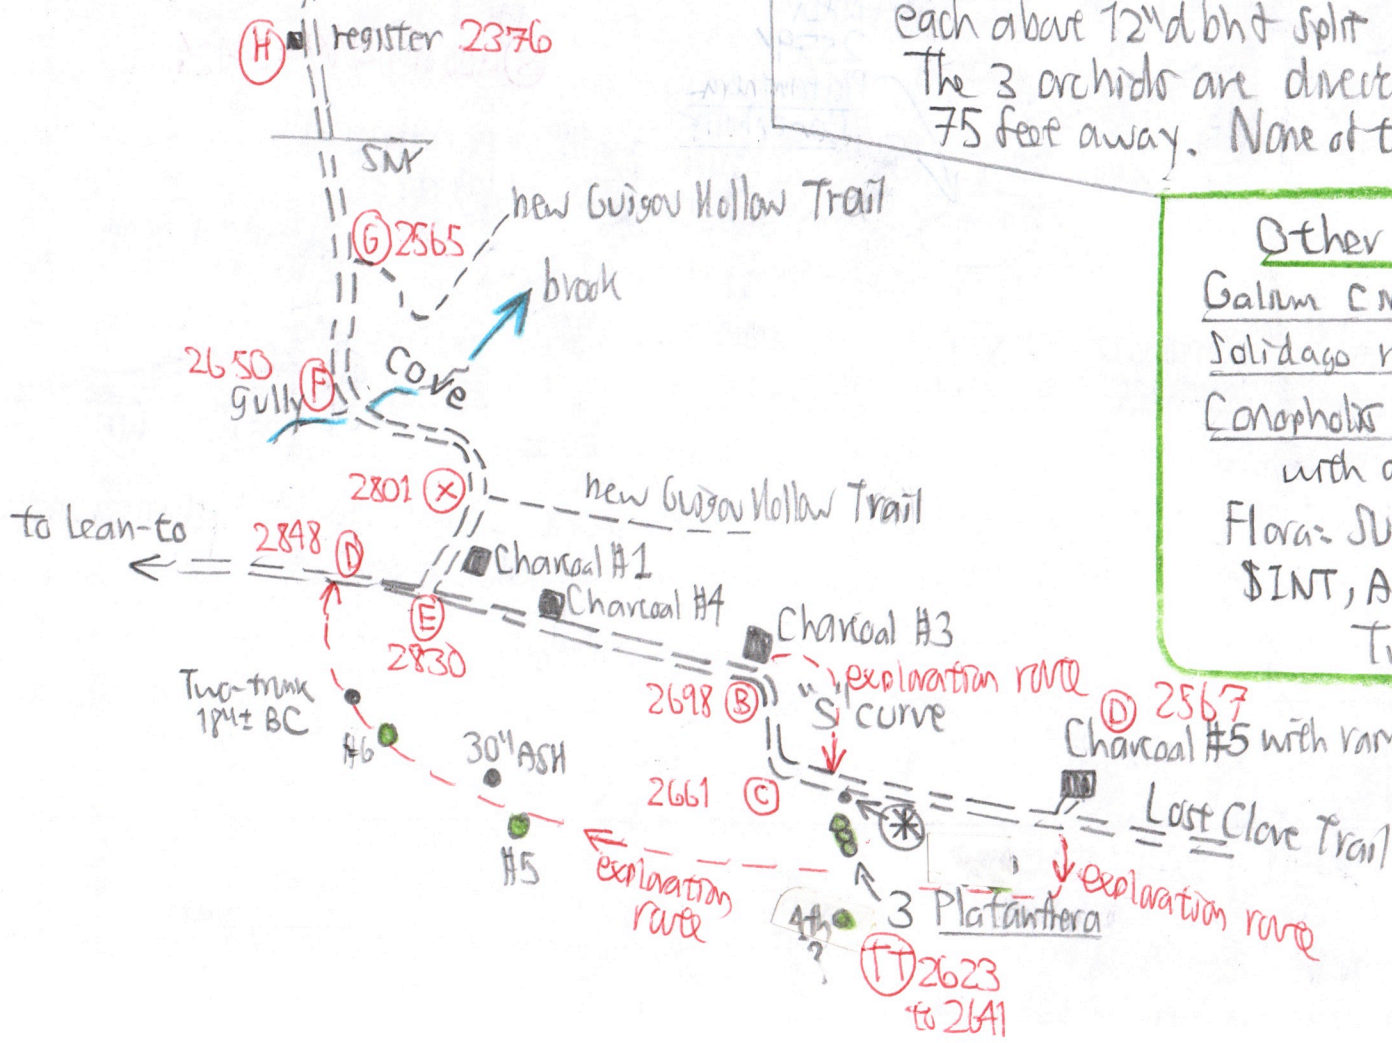 H register 2376
each about 12" dbh & split
The 3 orchids are direct
75 feet away. None of t
SNY
new Guigou Hollow Trail
G 2565
brook
2650 F
Gully
Cove
2801 X
new Guigou Hollow Trail
to Lean-to
2848 D
Charcoal #1
Charcoal #4
E
2830
Charcoal #3
exploration route
2698 B
"S"
curve
D 2567
Charcoal #5 with ram
Two-trunk
18"± BC
#6
30" ASH
2661 C
Lost Clove Trail
#5
exploration
route
exploration route
4th
?
3 Platanthera
TT 2623
to 2641
Other
Galium
Solidago
Conopholis
with
Flora=
$INT, A